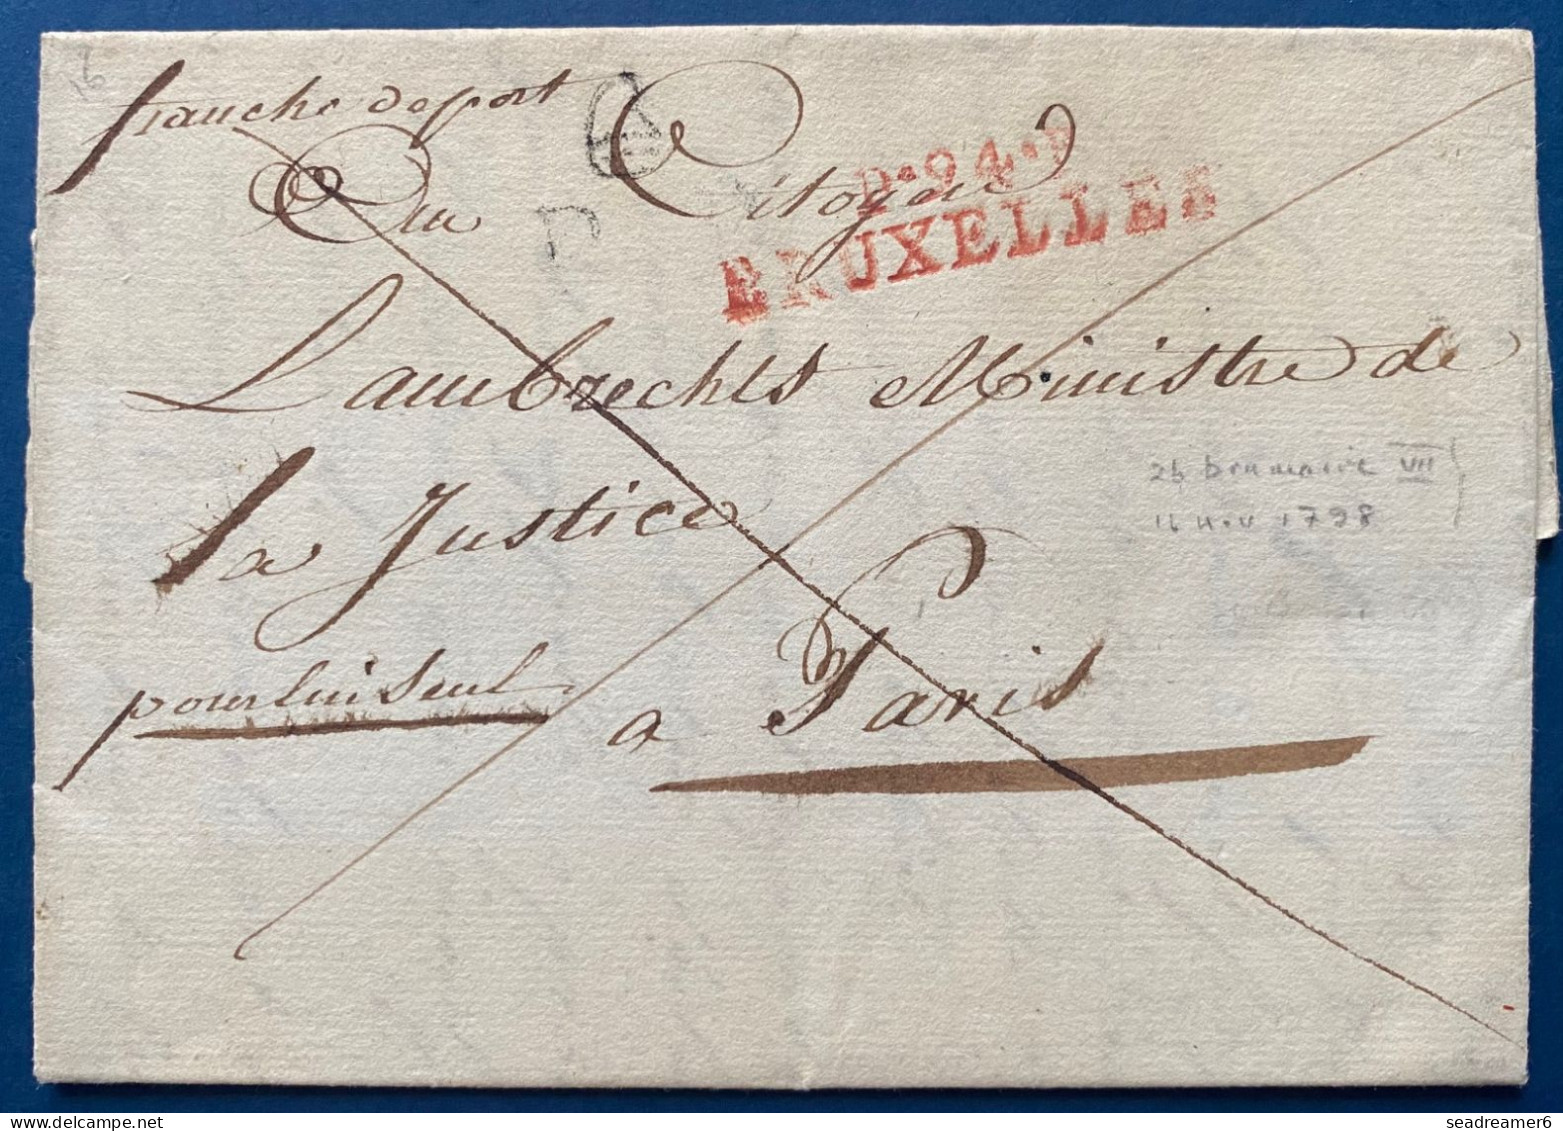 16
franche de port
Au Citoyen
P.94.P
BRUXELLES
Lambrechts Ministre de
la Justice
26 brumaire VII
16 nov 1798
pour lui seul
a Paris
seadreamer6